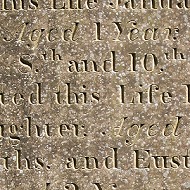 this Life Janua
Aged 1 Year
8,th and 10,th
ted this Life
ghter, Aged
ths, and Eust